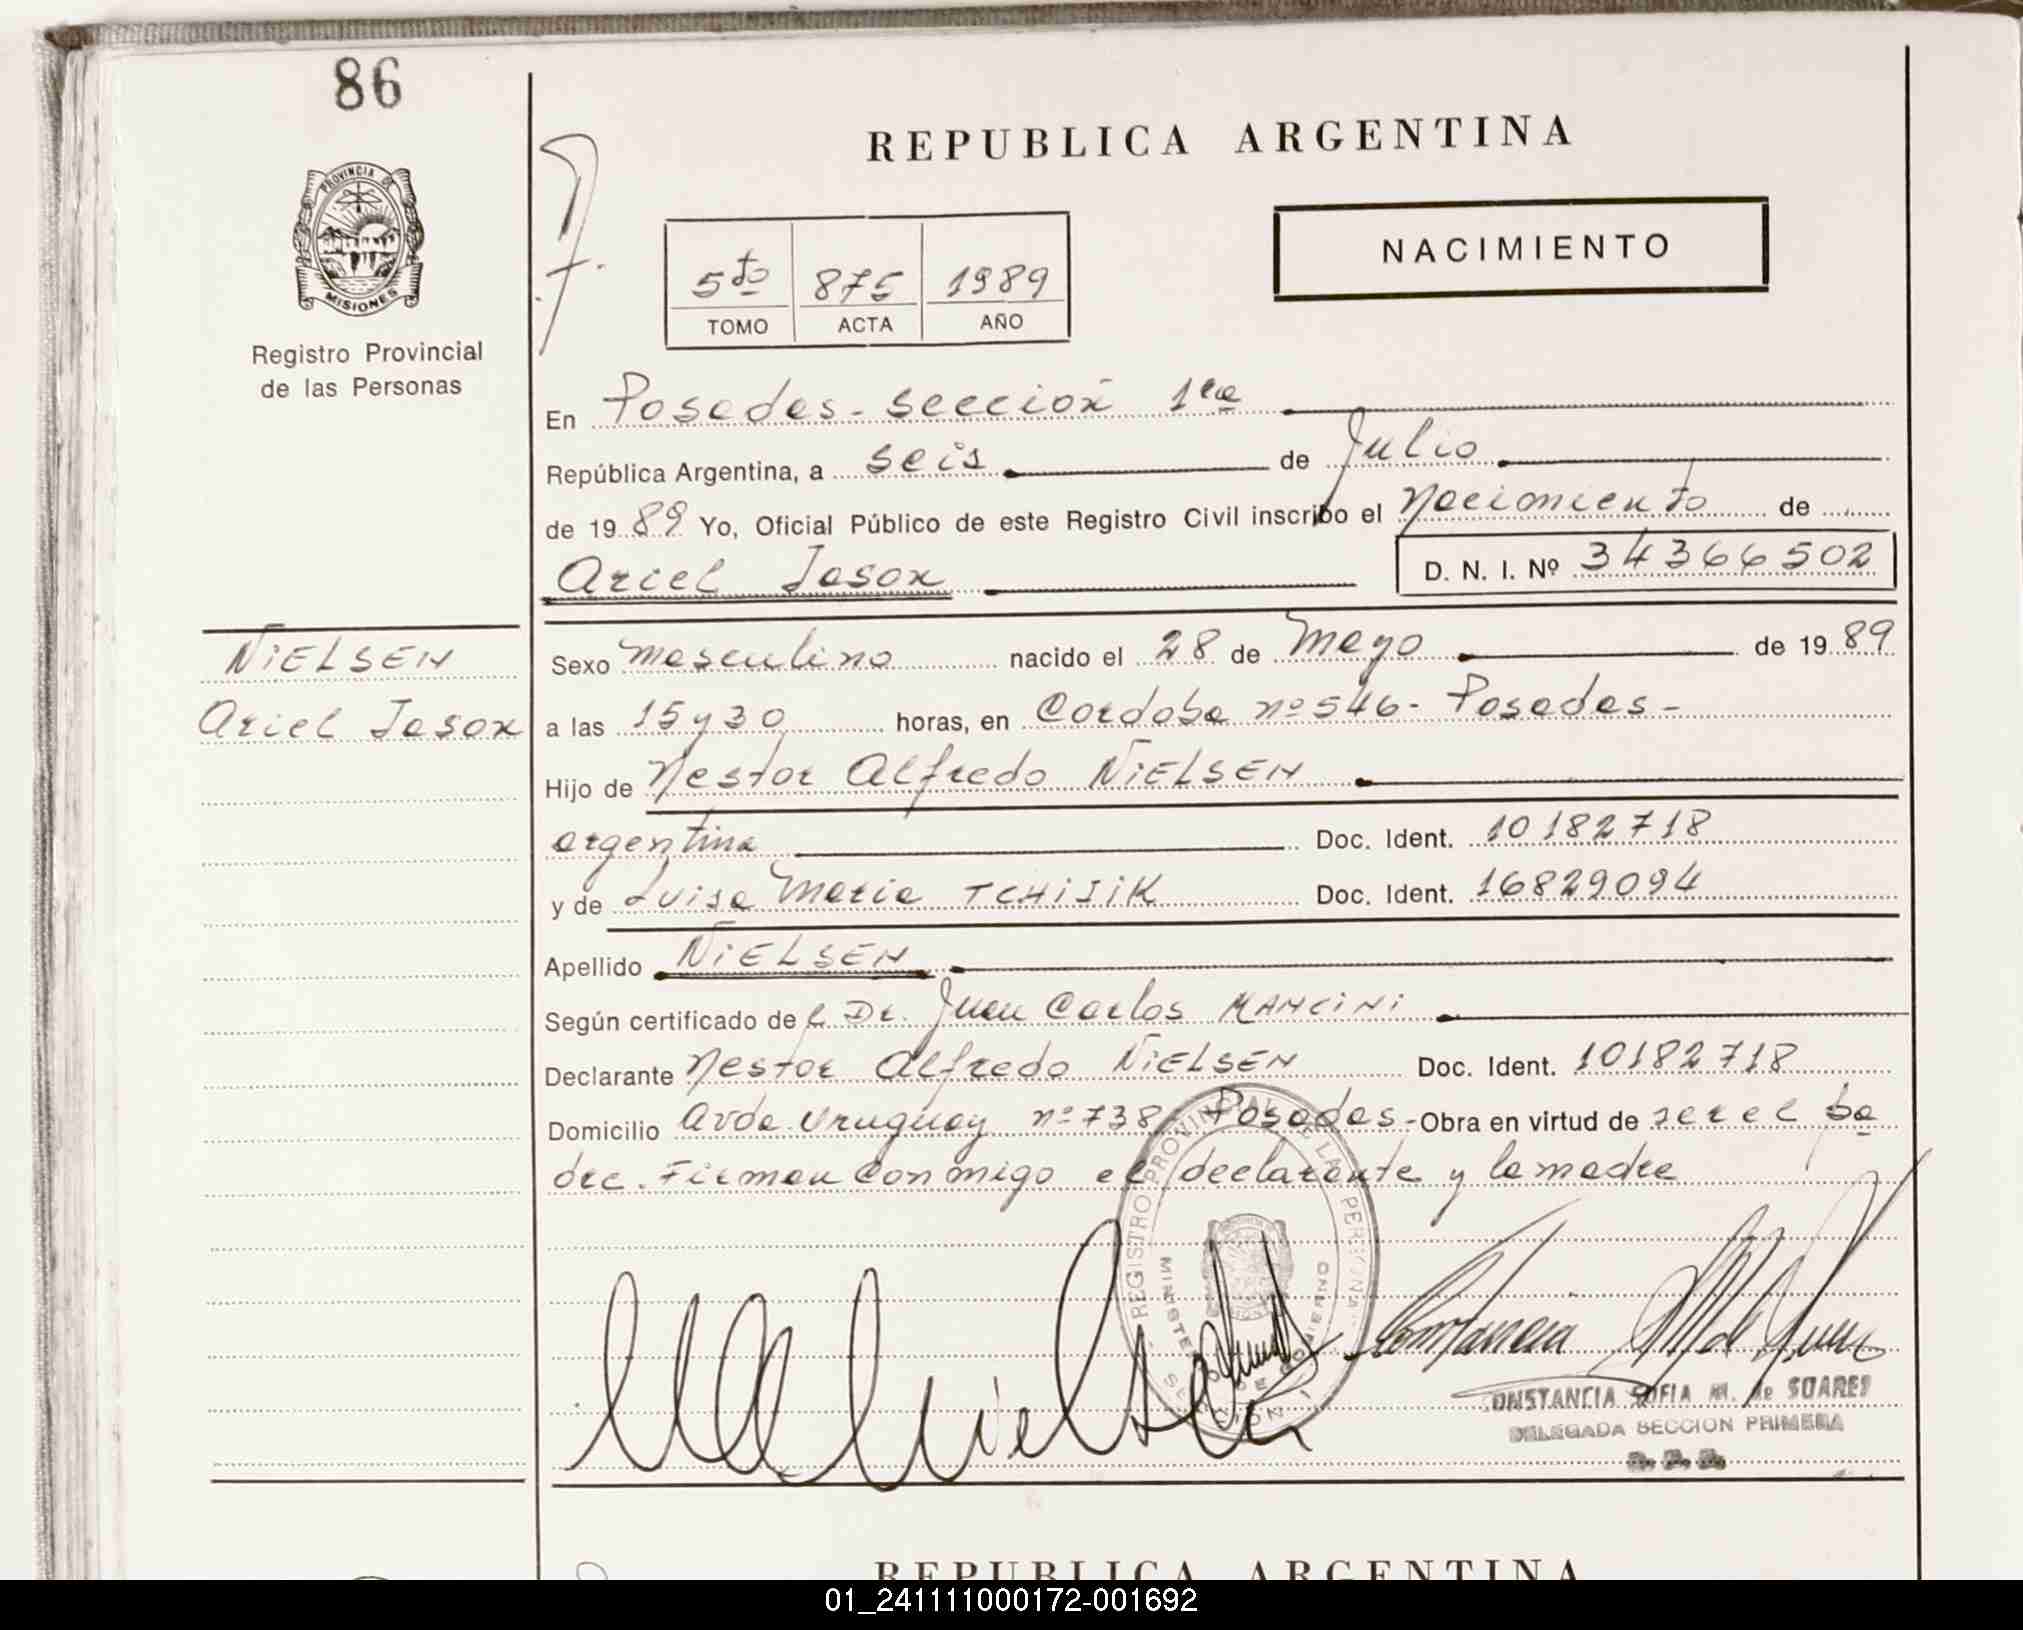 86
REPUBLICA ARGENTINA
PROVINCIA DE
MISIONES
Registro Provincial
de las Personas
NACIMIENTO
5to 875 1989
TOMO ACTA AÑO
En Posadas - sección 1ra
República Argentina, a seis de Julio
de 1989 Yo, Oficial Público de este Registro Civil inscribo el Nacimiento de
Ariel Jason D. N. I. Nº 34366502
NiELSEN
Ariel Jason
Sexo masculino nacido el 28 de Mayo de 1989
a las 15 y 30 horas, en Cordoba nº 546 - Posadas -
Hijo de Nestor Alfredo NiELSEN
argentina Doc. Ident. 10182718
y de Luisa Maria TCHiJiK Doc. Ident. 16829094
Apellido NiELSEN
Según certificado de l Dr. Juan Carlos MANCiNi
Declarante Nestor Alfredo NiELSEN Doc. Ident. 10182718
Domicilio avda Uruguay nº 738 Posadas - Obra en virtud de ser el pa
dre. Firman conmigo el declarante y la madre
REGISTRO PROVINCIAL DE LAS PERSONAS
CONSTANCIA SOFIA M. de SUARES
DELEGADA SECCION PRIMERA
REPUBLICA ARGENTINA
01_241111000172-001692